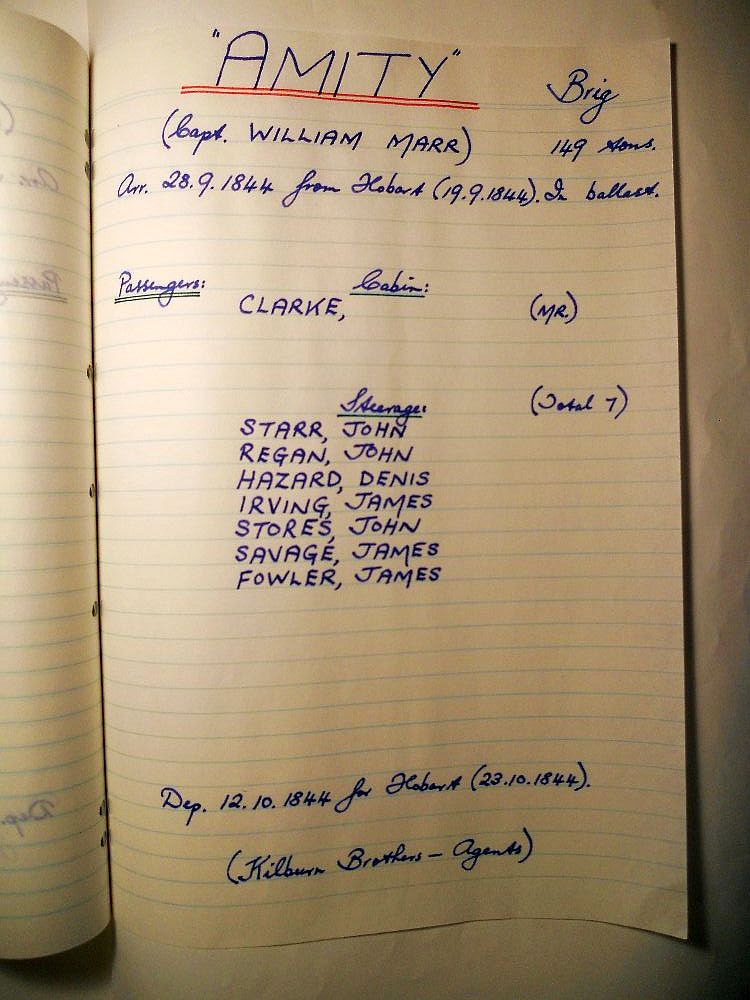 "AMITY" Brig
(Capt. WILLIAM MARR) 149 tons.
Arr. 28.9.1844 from Hobart (19.9.1844). In ballast.
Passengers: Cabin:
CLARKE, (MR.)
Steerage: (Total 7)
STARR, JOHN
REGAN, JOHN
HAZARD, DENIS
IRVING, JAMES
STORES, JOHN
SAVAGE, JAMES
FOWLER, JAMES
Dep. 12.10.1844 for Hobart (23.10.1844).
(Kilburn Brothers - Agents)